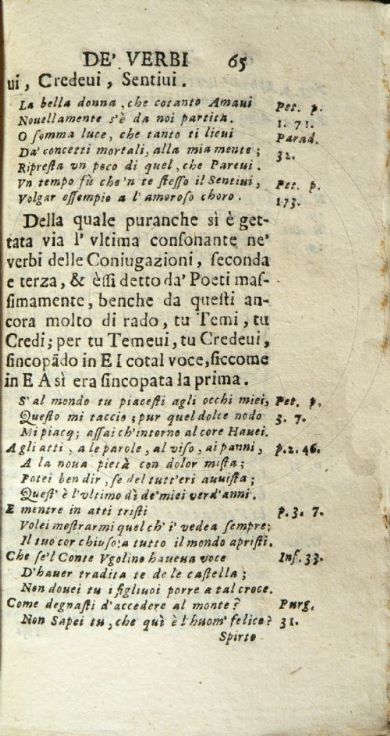 DE' VERBI 65
ui, Credeui, Sentiui.
La bella donna, che cotanto Amaui Pet. p.
Nouellamente s'è da noi partita. 1. 71.
O somma luce, che tanto ti lieui Parad.
Da' concetti mortali, alla mia mente; 32.
Ripresta vn poco di quel, che Pareui.
Vn tempo fù che'n te stesso il Sentiui, Pet. p.
Volgar essempio a l'amoroso choro. 173.
Della quale puranche sì è get-
tata via l' vltima consonante ne'
verbi delle Coniugazioni, seconda
e terza, & èssi detto da' Poeti mas-
simamente, benche da questi an-
cora molto di rado, tu Temi, tu
Credi; per tu Temeui, tu Credeui,
sincopādo in E I cotal voce, siccome
in E A sì era sincopata la prima.
S' al mondo tu piacesti agli occhi miei, Pet. p.
Questo mi taccio; pur quel dolce nodo 3. 7.
Mi piacq; assai ch'intorno al core Hauei.
Agli atti, a le parole, al viso, ai panni, p. 2. 46.
A la noua pietà con dolor mista;
Potei ben dir, se del tutt'eri auuista;
Quest' è l'vltimo dì de' miei verd' anni.
E mentre in atti tristi p. 3. 7.
Volei mostrarmi quel ch' i' vedea sempre;
Il tuo cor chiuso: a tutto il mondo apristi.
Che se'l Conte Vgolino haueua voce Inf. 33.
D'hauer tradita te de le castella;
Non douei tu i figliuoi porre a tal croce.
Come degnasti d'accedere al monte? Purg.
Non Sapei tu, che quì è l'huom' felice? 31.
Spirto